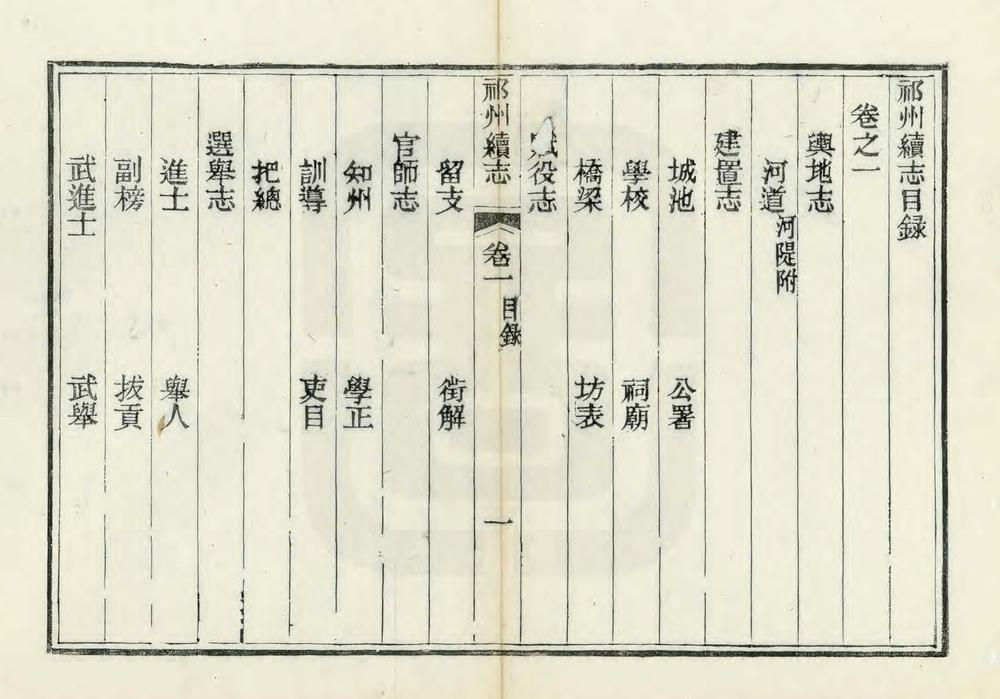 祁州續志目録
卷之一
輿地志
河道河隄附
建置志
城池 公署
學校 祠廟
橋梁 坊表
役志
祁州續志 卷一 目録 一
留支 銜解
官師志
知州 學正
訓導 吏目
把總
選舉志
進士 舉人
副榜 拔貢
武進士 武舉